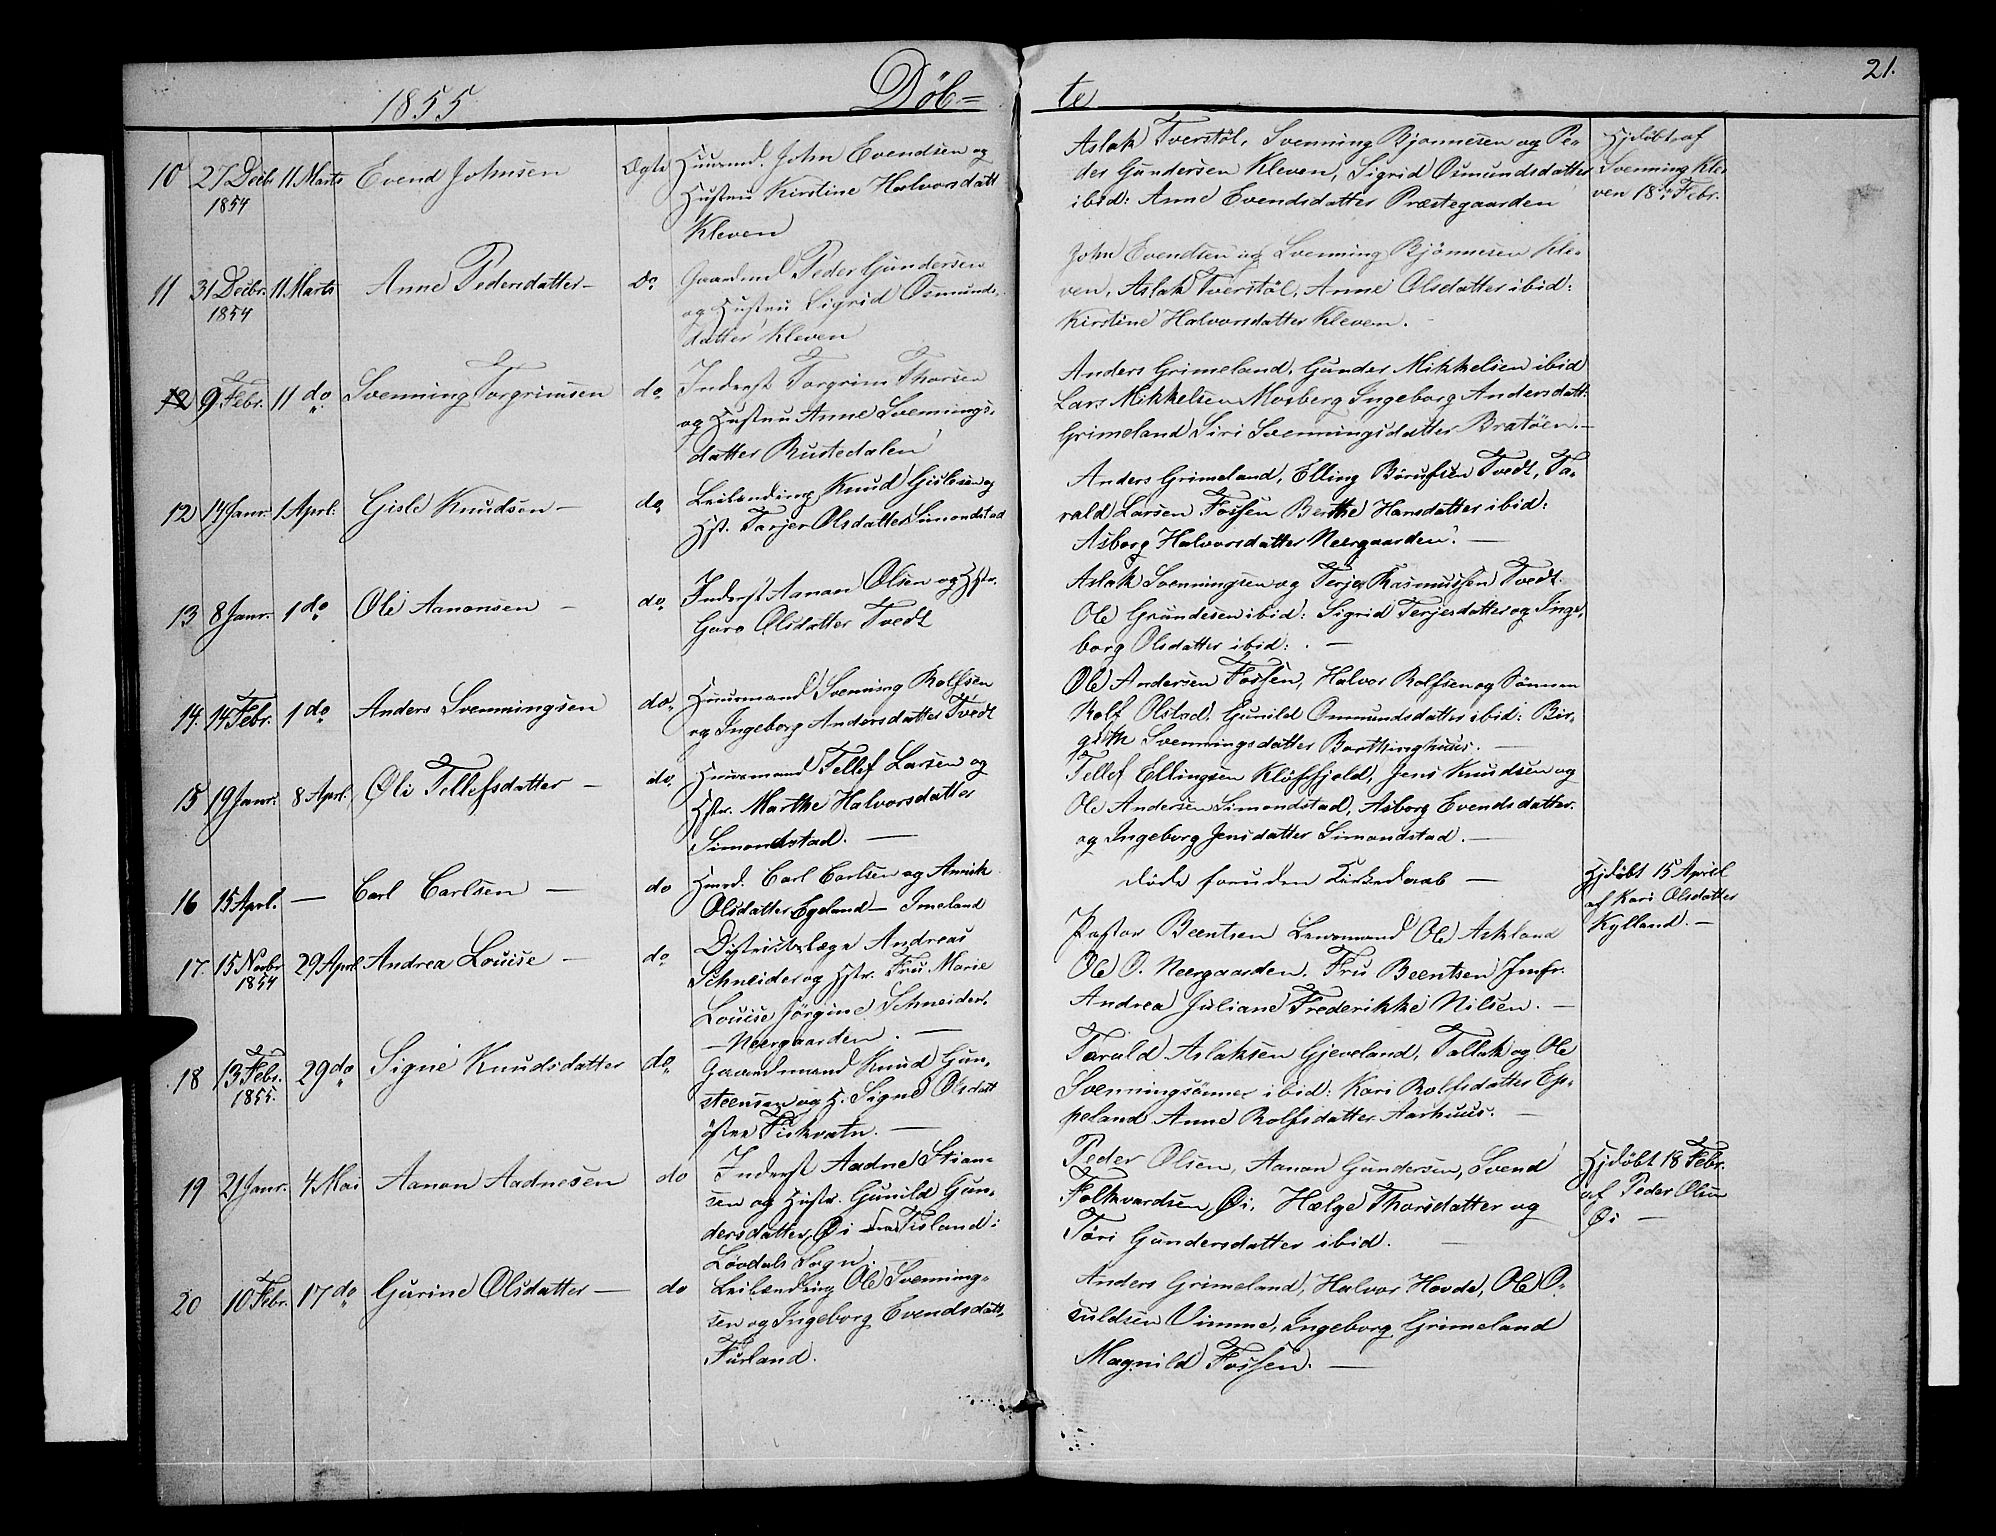 1855
Døb=
te
21.
10 27 Decb 11 Marts Evend Johnsen Ægte Huusmd. John Evendsen og
1854
Hustru Kirstine Halvorsdatt
Kleven
Aslak Tverstøl, Svenning Bjonnesen og Pe-
der Gundersen Kleven, Sigrid Osmundsdatter
ibid: Anne Evendsdatter Præstegaarden
Hjdøbt af
Svenning Kle
ven 18de Febr.
11 31 Decbr. 11 Marts Anne Pedersdatter – Do Gaardmd Peder Gundersen
1854
og Hustru Sigrid Osmunds-
datter Kleven
John Evendsen og Svenning Bjönnesen Kle-
ven, Aslak Tverstöl, Anne Olsdatter ibid:
Kirstine Halvorsdatter Kleven. –
12 9 Febr. 11 do Svenning Torgrimsen do Inderst Torgrim Thorsen
og Hustru Anne Svennings-
datter Rustedalen
Anders Grimeland, Gunder Mikkelsen ibid
Lars Mikkelsen Mosberg Ingeborg Andersdatt:
Grimeland Siri Svenningsdatter Bratöen. –
12 14 Janr. 1 Aprl. Gisle Knudsen – do Leilending Knud Gislesen og
Hst. Tarjer Olsdatter Simonstad
Anders Grimeland, Elling Tvedt, Ta-
rald Larsen Fossen Berthe Hansdatter ibid:
Asborg Halvorsdatter Neergaarden. –
13 8 Janr. 1 do Ole Aanonsen – do Inderst Aanon Olsen og Hstr.
Guro Olsdatter Tvedt
Aslak Svenningsen og Terje Rasmussen Tvedt.
Ole Grundesen ibid: Sigrid Terjesdatter og Inge-
borg Olsdatter ibid: . –
14. 14 Febr. 1 do Anders Svenningsen do Huusmand Svenning Rolfsen
og Ingeborg Andersdatter Tvedt
Ole Andersen Fossen, Halvor Rolfsen og Sönnen
Rolf Olstad, Gunild Onmundsdatter ibid: Bir-
gith Svenningsdatter
15 19 Janr. 8 Aprl. Øli Tellefsdatter – do Huusmand Tellef Larsen og
Hstr. Marthe Halvorsdatter
Simonstad. –
Tellef Ellingsen Klöffjeld, Jens Knudsen og
Ole Andersen Simonstad, Asborg Evendsdatter
og Ingeborg Jensdatter Simonstad. –
16 15 Aprl. – Carl Carlsen – do Husmd. Carl Carlsen og Annik
Olsdatter Egeland – Imeland
døde foruden Kirkedaab –
Hjdøbt 15 April
af Kari Olsdatter
Kylland. –
17. 15 Novbr 29 Aprl Andrea Louise – do Districtslæge Andreas
1854
Schneider og Hstr. Fru Marie
Louise Jörgine Schneider.
– Neergaarden. –
Pastor Beentsen Lensmand Ole Askland
Ole O. Neergaarden. Fru Beentsen Jmfr.
Andrea Juliane Frederikke Nilsen. –
18 13 Febr. 29 do Signe Knudsdatter do Gaardmand Knud Gun-
1855.
steensen og H. Signe Olsdatt
östre Fiskvatn. –
Tarald Aslaksen Gjeveland, Tallak og Ole
Svenningsönner ibid: Kari Rolfsdatter Ep-
peland Anne Rolfsdatter Aarhuus. –
19 21 Janr. 4 Mai Aanon Aadnesen do Inderst Aadne Stian-
sen og Hustr. Gunild Gun-
dersdatter, Øi fra Tisland i
Løvdals Sogn.
Peder Olsen, Aanon Gundersen, Svend
Folkvardsen, Øi, Hælge Thorsdatter og
Töri Gundersdatter ibid. –
Hjdöbt 18 Febr.
af Peder Olsen
Øi –
20 10 Febr. 17 do Gurine Olsdatter – do Leilending Ole Svenning-
sen og Ingeborg Evendsdatt.
Furland.
Anders Grimeland, Halvor Hovde, Ole O-
suldsen Vimme, Ingeborg Grimeland
Magnild Fossen. –